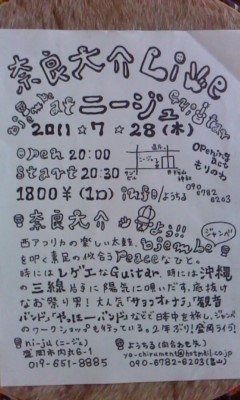 奈良大介 Live
djembe at ニージュ guitar
2011☆7☆28(木)
open 20:00
start 20:30
1800¥(1D)
Opening act
もりの
info/ようちる
090
6782
6203
奈良大介
djembe
ジャンベ
西アフリカの楽しい太鼓、
を叩く素足の似合うPeaceなひと。
時にはレゲエなGuitar、時には沖縄
の三線片手に陽気に唄いだす、底抜け
なお祭り男!大人気「サヨコオトナラ」「観音
バンド」「やっほー!バンド」などで時中を旅し、ジャンベ
のワークショップも行っている。2年ぶり!盛岡ライヴ!
ni-ju(ニージュ)
盛岡市内丸6-1
019-651-8885
ようちる
090-6782-6203